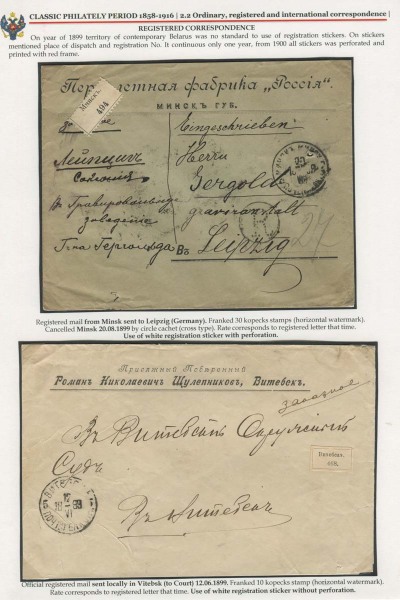 CLASSIC PHILATELY PERIOD 1858-1916 | 2.2 Ordinary, registered and international correspondence |
REGISTERED CORRESPONDENCE
On year of 1899 territory of contemporary Belarus was no standard to use of registration stickers. On stickers
mentioned place of dispatch and registration No. It continues only one year, from 1900 all stickers was perforated and
printed with red frame.
фабрика „Россія".
МИНСКЪ ГУБ.
Минскъ.
494
Eingeschrieben
Лейпцигъ
Herrn
Gergold
graviranstalt
заведеніе
Въ Leipzig
Registered mail from Minsk sent to Leipzig (Germany). Franked 30 kopecks stamps (horizontal watermark).
Cancelled Minsk 20.08.1899 by circle cachet (cross type). Rate corresponds to registered letter that time.
Use of white registration sticker with perforation.
Присяжный Повѣренный
Романъ Николаевичъ Щулепниковъ, Витебскъ.
заказное
Въ Витебскій Окружный
Судъ
Витебскъ.
Въ Витебскъ
Official registered mail sent locally in Vitebsk (to Court) 12.06.1899. Franked 10 kopecks stamp (horizontal watermark).
Rate corresponds to registered letter that time. Use of white registration sticker without perforation.